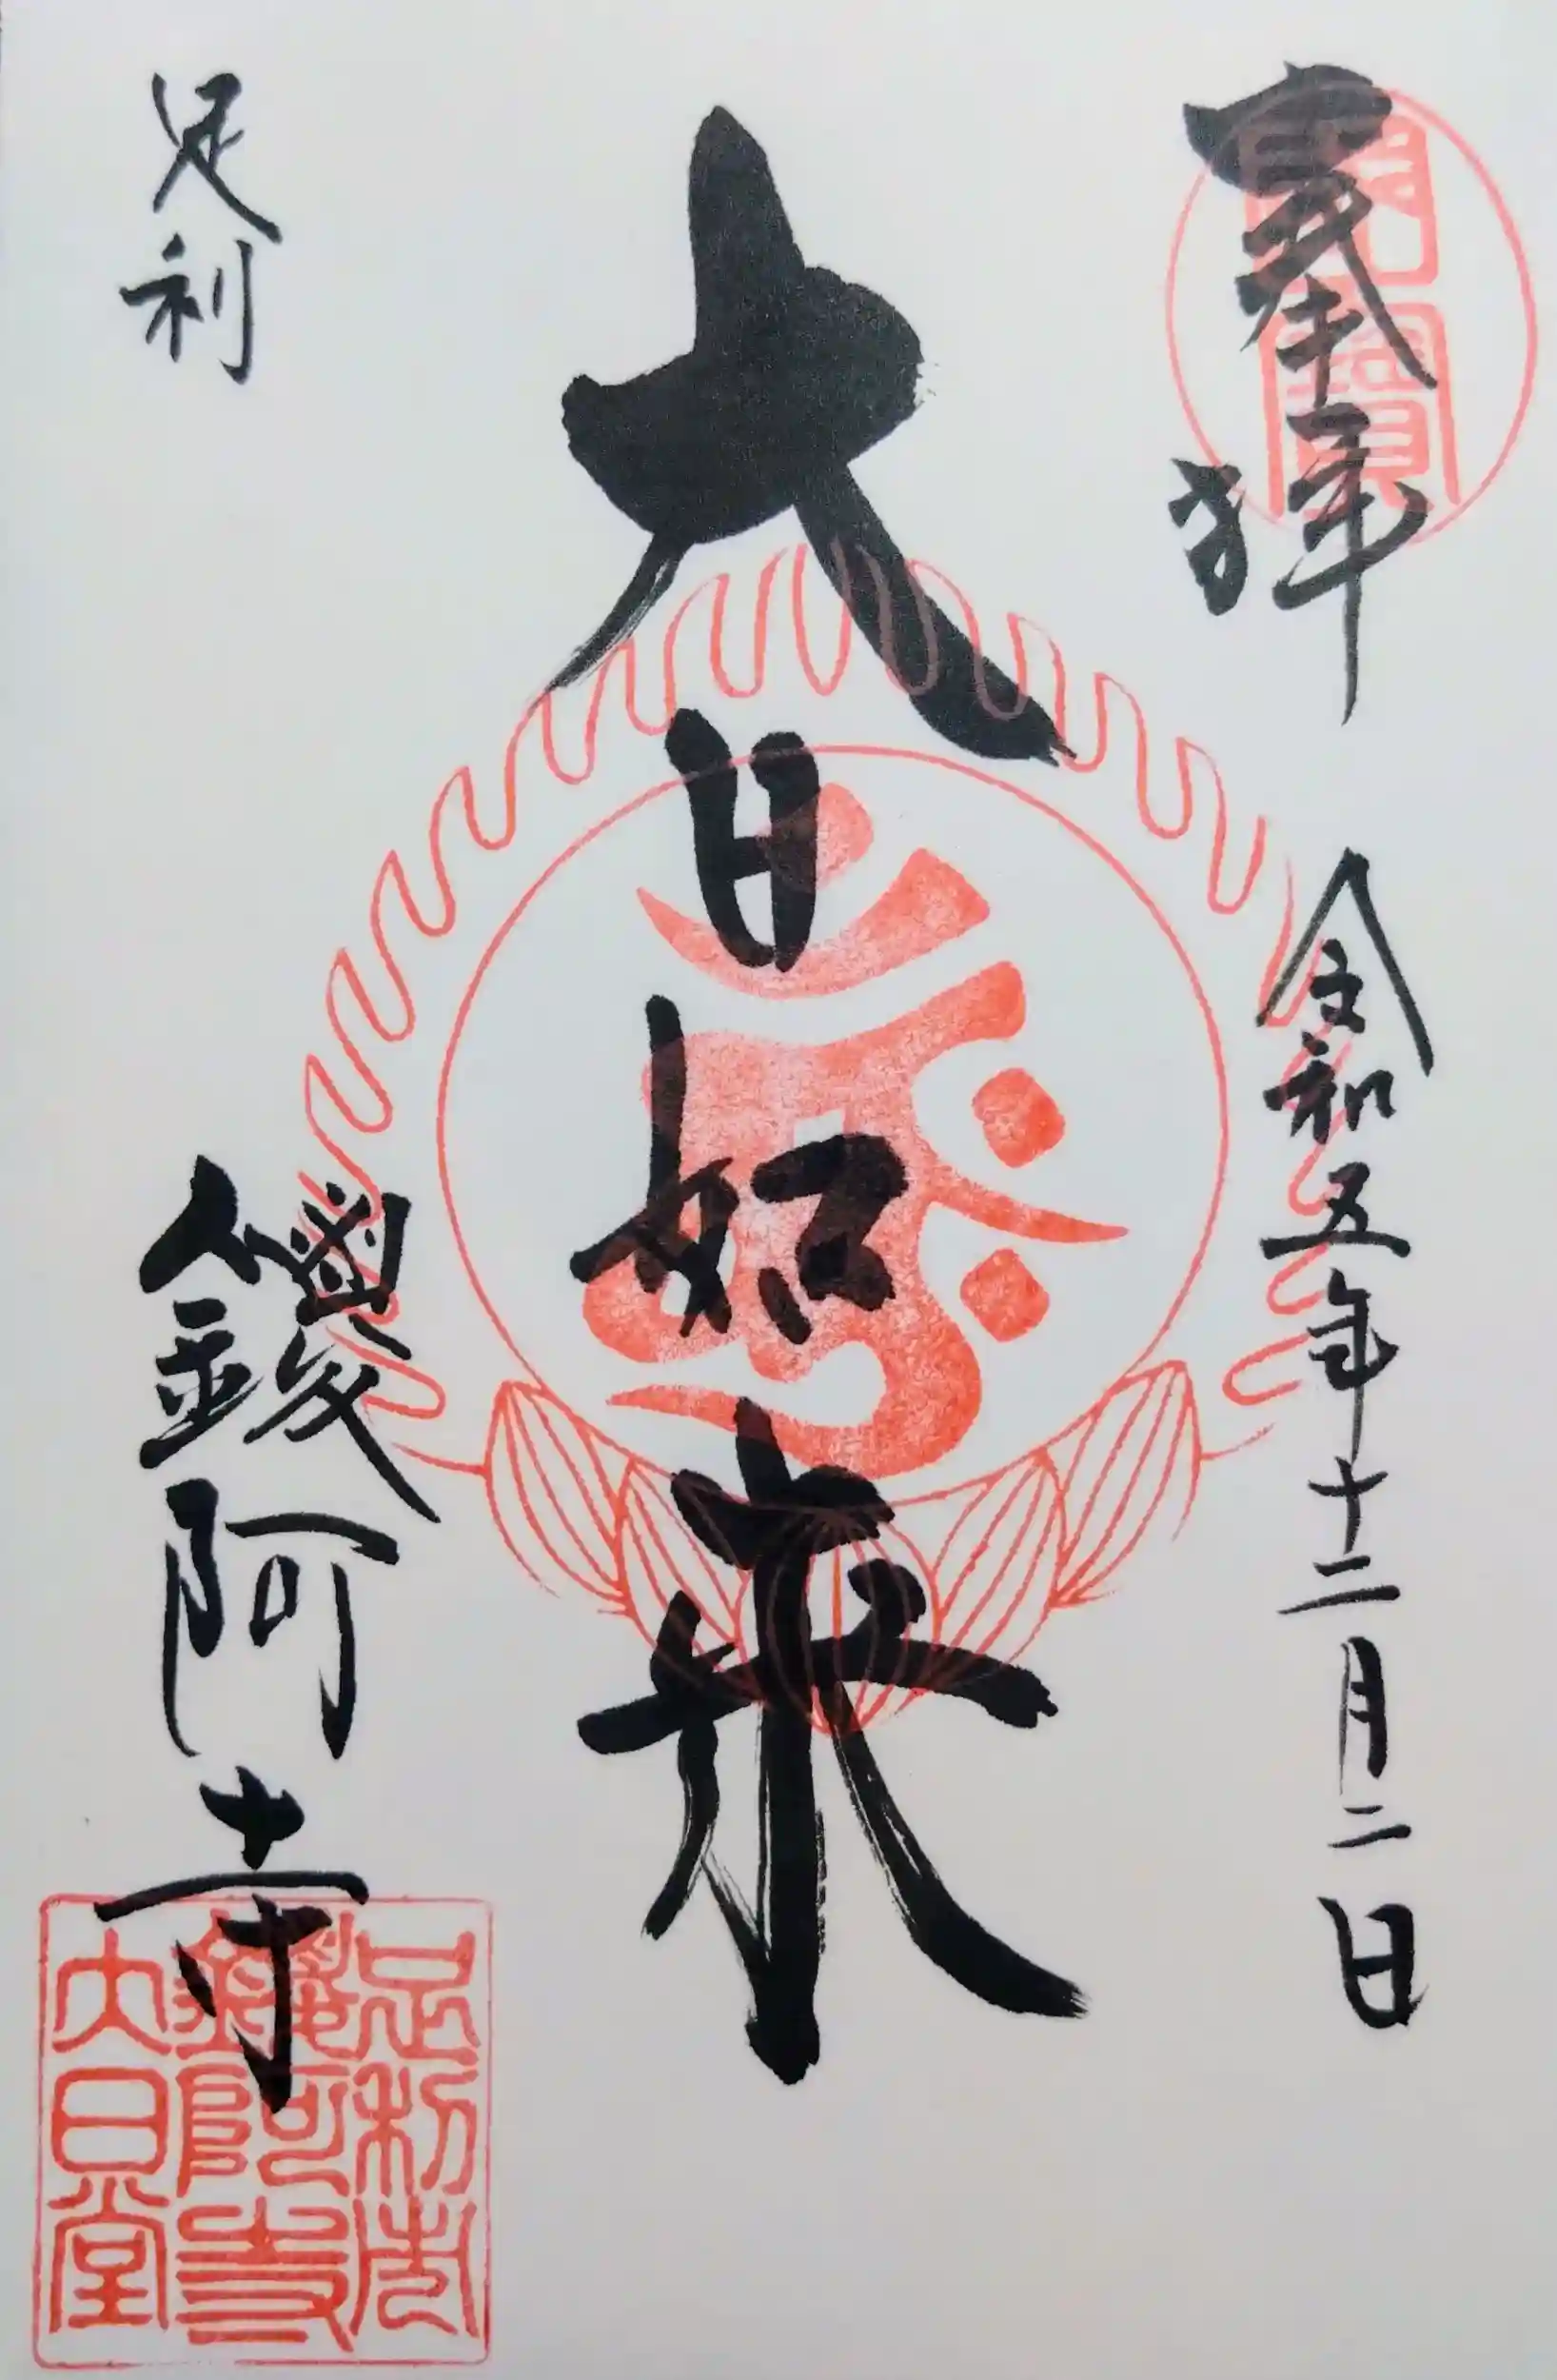 奉拝
國寶
令和五年十二月二日
大日如来
足利
鑁阿寺
足利市
鑁阿寺
大日堂